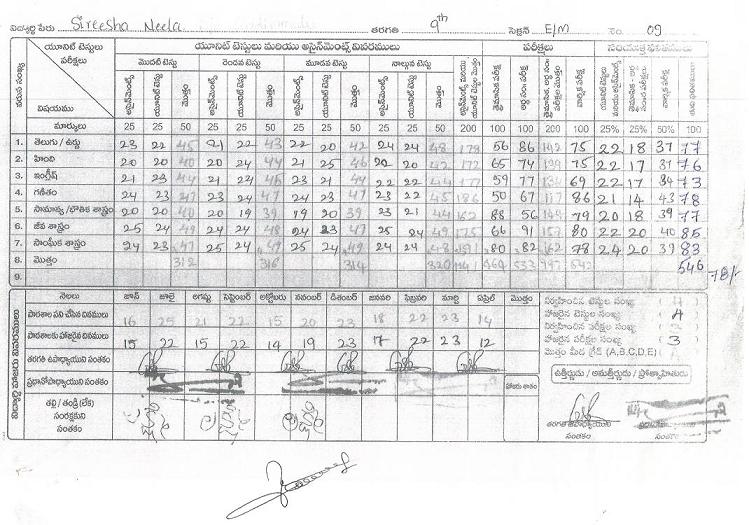 విద్యార్థి పేరు Sireesha Neela తరగతి 9th సెక్షన్ E/M నెం. 09
యూనిట్ టెస్టులు పరీక్షలు
యూనిట్ టెస్టులు మరియు అసైన్‌మెంట్స్ వివరములు
పరీక్షలు
మొదటి టెస్టు రెండవ టెస్టు మూడవ టెస్టు నాల్గవ టెస్టు
వరుస సంఖ్య
విషయము
అసైన్‌మెంట్స్ యూనిట్ టెస్టు మొత్తం అసైన్‌మెంట్స్ యూనిట్ టెస్టు మొత్తం అసైన్‌మెంట్స్ యూనిట్ టెస్టు మొత్తం అసైన్‌మెంట్స్ యూనిట్ టెస్టు మొత్తం
మార్కులు 25 25 50 25 25 50 25 25 50 25 25 50 200 100 100 200 100 25% 25% 50% 100
1. తెలుగు / ఉర్దు 23 22 45 21 22 43 22 20 42 24 24 48 56 86 142 75 22 18 37 77
2. హింది 20 20 40 20 24 44 21 25 46 20 22 42 172 65 74 139 75 22 17 37 76
3. ఇంగ్లీష్ 21 23 44 21 24 45 23 21 44 22 22 44 177 59 77 69 22 17 34 73
4. గణితం 24 23 47 23 24 47 24 23 47 23 22 45 186 50 67 117 86 21 14 43 78
5. సామాన్య / భౌతిక శాస్త్రం 20 20 40 20 19 39 19 20 39 23 21 44 162 88 56 79 20 18 39 77
6. జీవ శాస్త్రం 25 24 49 24 24 48 24 23 47 25 24 49 66 91 157 80 22 20 40 85
7. సాంఘీక శాస్త్రం 24 23 47 25 24 49 25 24 49 24 24 48 80 82 162 78 24 20 39 83
8. మొత్తం 312 316 314 320 533 546
9. 78%
నెలలు జూన్ జూలై ఆగష్టు సెప్టెంబర్ అక్టోబరు నవంబర్ డిసెంబర్ జనవరి ఫిబ్రవరి మార్చి ఏప్రిల్ మొత్తం
పాఠశాల పని చేసిన దినములు 16 25 21 22 15 20 23 18 22 23 14
పాఠశాలకు హాజరైన దినములు 15 22 15 22 14 19 23 17 22 23 12
నిర్వహించిన టెస్టుల సంఖ్య
హాజరైన టెస్టుల సంఖ్య
నిర్వహించిన పరీక్షల సంఖ్య
హాజరైన పరీక్షల సంఖ్య 3
మొత్తం మీద గ్రేడ్ (A,B,C,D,E)
తరగతి ఉపాధ్యాయుని సంతకం
ప్రధానోపాధ్యాయుని సంతకం
హాజరు శాతం
ఉత్తీర్ణుడు / అనుత్తీర్ణుడు / ప్రోత్సాహితుడు
తల్లి / తండ్రి (లేక) సంరక్షకుని సంతకం
తరగతి ఉపాధ్యాయుని సంతకం
ప్రధానోపాధ్యాయుని సంతకం